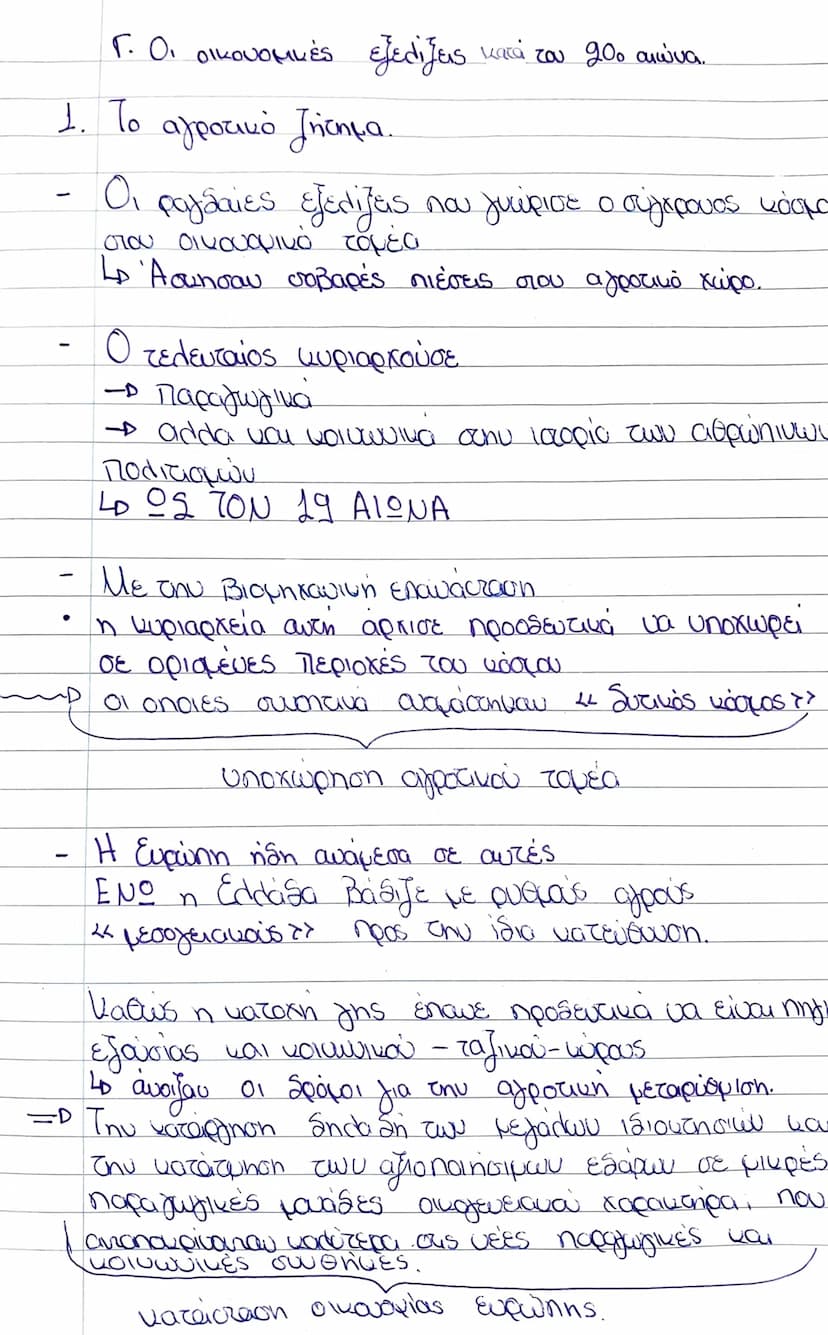 Γ. Οι οικονομικές εξελίξεις κατά τον 20ο αιώνα.
1. Το αγροτικό ζήτημα.
- Οι ραγδαίες εξελίξεις που γνώρισε ο σύγχρονος κόσμο
στον οικονομικό τομέα
↳ Άσκησαν σοβαρές πιέσεις στον αγροτικό χώρο.
- Ο τελευταίος κυριαρχούσε
→ παραγωγικά
→ αλλα και κοινωνικά στην ιστορία των αθρώπινων
πολιτισμών
↳ ΩΣ ΤΟΝ 19 ΑΙΩΝΑ
- Με την Βιομηχανική επανάσταση
• η κυριαρχεία αυτή άρχισε προοδευτικά να υποχωρεί
σε ορισμένες περιοχές του κόσμου
→ οι οποιες συστικά ονομάστηκαν « δυτικός κόσμος »
υποχώρηση αγροτικού τομέα
- Η Ευρώπη ήδη ανάμεσα σε αυτές
ΕΝΩ η Ελλάδα βάδιζε με ρυθμούς αργούς
« μεσογειακούς » προς την ίδια κατεύθυνση.
Καθώς η κατοχή γης έπαυε προδευτικά να είναι πηγ
εξουσίας και κοινωνικού - ταξικού - κύρους
↳ άνοιξαν οι δρόμοι για την αγροτική μεταρύθμιση.
⇒ Την κατάργηση δηλαδή των μεγάλων ιδιοκτησιών κα
την κατάτμηση των αξιοποιήσιμων εδάφων σε μικρές
παραγωγικές μονάδες οικογενειακού χαρακτήρα, που
ανταποκρίνονταν καλύτερα στις νέες παραγωγικές και
κοινωνικές συνθήκες.
κατάσταση οικονομίας Ευρώπης.